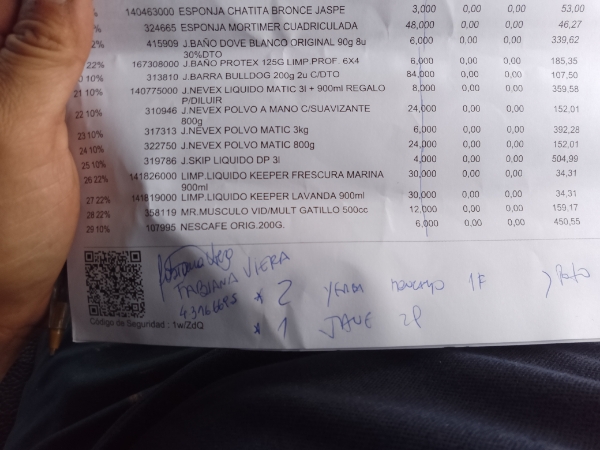 140463000 ESPONJA CHATITA BRONCE JASPE 3,000 0,00 0,00 53,00
324665 ESPONJA MORTIMER CUADRICULADA 48,000 0,00 0,00 46,27
22% 415909 J.BAÑO DOVE BLANCO ORIGINAL 90g 8u 6,000 0,00 0,00 339,62
30%DTO
22% 167308000 J.BAÑO PROTEX 125G LIMP PROF. 6X4 6,000 0,00 0,00 185,35
10% 313810 J.BARRA BULLDOG 200g 2u C/DTO 84,000 0,00 0,00 107,50
21 10% 140775000 J.NEVEX LIQUIDO MATIC 3l + 900ml REGALO 8,000 0,00 0,00 359,58
P/DILUIR
22 10% 310946 J.NEVEX POLVO A MANO C/SUAVIZANTE 24,000 0,00 0,00 152,01
800g
23 10% 317313 J.NEVEX POLVO MATIC 3kg 6,000 0,00 0,00 392,28
24 10% 322750 J.NEVEX POLVO MATIC 800g 24,000 0,00 0,00 152,01
25 10% 319786 J.SKIP LIQUIDO DP 3l 4,000 0,00 0,00 504,99
26 22% 141826000 LIMP.LIQUIDO KEEPER FRESCURA MARINA 30,000 0,00 0,00 34,31
900ml
27 22% 141819000 LIMP.LIQUIDO KEEPER LAVANDA 900ml 30,000 0,00 0,00 34,31
28 22% 358119 MR.MUSCULO VID/MULT GATILLO 500cc 12,000 0,00 0,00 159,17
29 10% 107995 NESCAFE ORIG.200G. 6,000 0,00 0,00 450,55
FABIANA VIERA
* 2 YERBA
* 1 JANE 2P
Código de Seguridad : 1w/ZdQ